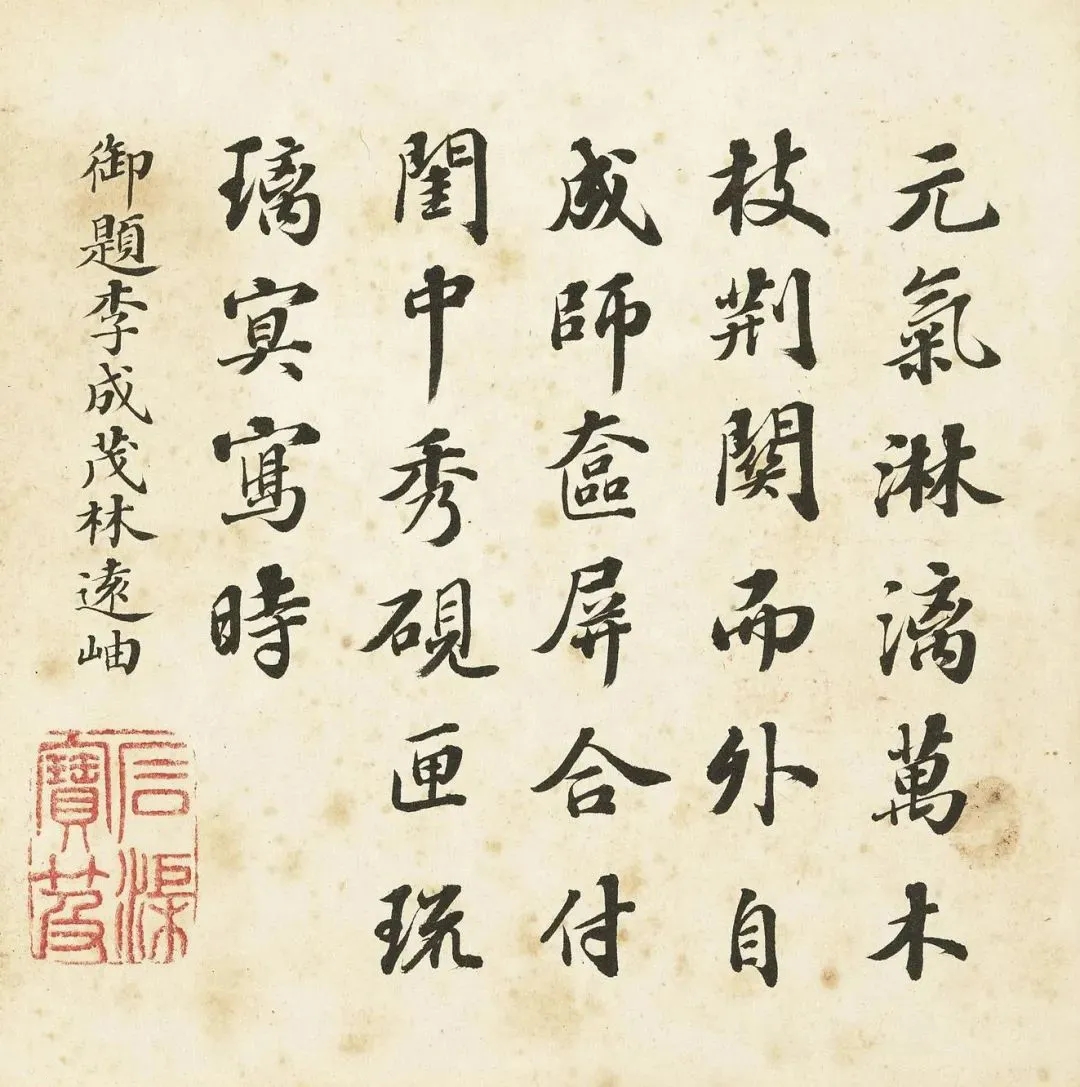 元氣淋漓萬木
枝荆關而外自
成師奩屏合付
閨中秀硯匣琉
璃冥寫時
御題李成茂林遠岫